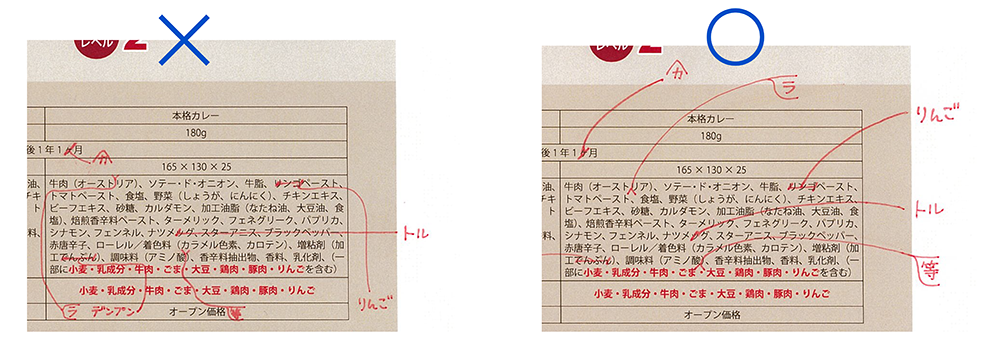 レベル 2
本格カレー
180g
後1年1ヶ月
カ
165 × 130 × 25
油、牛肉（オーストリア）、ソテー・ド・オニオン、牛脂、リンゴペースト、
チキ トマトペースト、食塩、野菜（しょうが、にんにく）、チキンエキス、
ト ビーフエキス、砂糖、カルダモン、加工油脂（なたね油、大豆油、食
塩）、焙煎香辛料ペースト、ターメリック、フェネグリーク、パプリカ、
料、シナモン、フェンネル、ナツメグ、スターアニス、ブラックペッパー、
トル
赤唐辛子、ローレル／着色料（カラメル色素、カロテン）、増粘剤（加
工でんぷん）、調味料（アミノ酸）、香辛料抽出物、香料、乳化剤、（一
部に小麦・乳成分・牛肉・ごま・大豆・鶏肉・豚肉・りんごを含む）
小麦・乳成分・牛肉・ごま・大豆・鶏肉・豚肉・りんご
りんご
ラ デンプン
オープン価格
レベル 2
カ
ラ
りんご
本格カレー
180g
後1年1ヶ月
165 × 130 × 25
油、牛肉（オーストリア）、ソテー・ド・オニオン、牛脂、リンゴペースト、
チキ トマトペースト、食塩、野菜（しょうが、にんにく）、チキンエキス、
ト ビーフエキス、砂糖、カルダモン、加工油脂（なたね油、大豆油、食
トル
塩）、焙煎香辛料ペースト、ターメリック、フェネグリーク、パプリカ、
料、シナモン、フェンネル、ナツメグ、スターアニス、ブラックペッパー、
赤唐辛子、ローレル／着色料（カラメル色素、カロテン）、増粘剤（加
工でんぷん）、調味料（アミノ酸）、香辛料抽出物、香料、乳化剤、（一
等
部に小麦・乳成分・牛肉・ごま・大豆・鶏肉・豚肉・りんごを含む）
小麦・乳成分・牛肉・ごま・大豆・鶏肉・豚肉・りんご
オープン価格